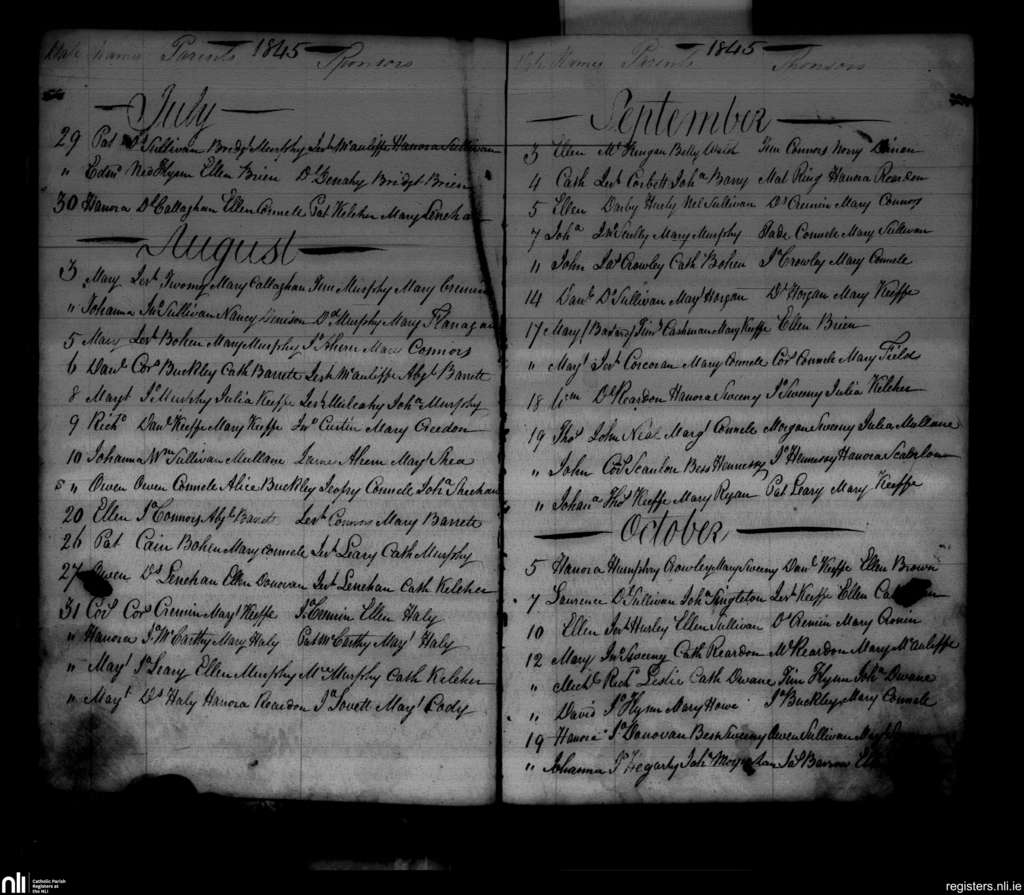 Date Names Parents 1845 Sponsors
July
29 Pat Ds Sullivan Bridgt Murphy Jerh Mcauliffe Hanora Sullivan
" Edmd Ned Flynn Ellen Brien Ds Denahy Bridgt Brien
30 Hanora Ds Callaghan Ellen Connele Pat Keleher Mary Leneha
August
3 Mary Jerh Twomy Mary Callaghan Tim Murphy Mary Cremin
" Johanna Jno Sullivan Nancy Ds Murphy Mary Flanagan
5 Mary Jerh Bohen Mary Murphy Js Ahern Mary Connors
6 Danl Cors Buckley Cath Barrett Jerh Mcauliffe Abgt Barrett
8 Margt Js Murphy Julia Keeffe Jerh Mulcahy Joha Murphy
9 Richd Danl Keeffe Mary Keeffe Jno Curtin Mary Creedon
10 Johanna Wm Sullivan Mullane Ahern Mayt Shea
" Owen Owen Connele Alice Buckley Jeofry Connele Joha Sheehan
20 Ellen Js Connors Abgt Barrett Jerh Connors Mary Barrett
26 Pat Cain Bohen Mary Connele Jerh Leary Cath Murphy
27 Owen Ds Lenehan Ellen Donovan Jerh Lenehan Cath Keleher
31 Cors Cors Cremin Mayt Keeffe Js Cremin Ellen Haly
" Hanora Js McCarthy Mary Haly Pat McCarthy Mayt Haly
" Mayt Js Leary Ellen Murphy Mce Murphy Cath Keleher
" Mayt Ds Haly Hanora Reardon Js Lovett Mayt Cody
Names Parents 1845 Sponsors
September
3 Ellen Ml Kengan Betty Walsh Tim Connors Norry Dinan
4 Cath Jerh Corbett Joha Barry Mat Ring Hanora Reardon
5 Ellen Darby Hurly Nel Sullivan Ds Cremin Mary Connors
7 Joha Jno Scully Mary Murphy Connele Mary Sullivan
11 John Jas Crowley Cath Bohen Js Crowley Mary Connele
14 Danl Ds Sullivan Mayt Horgan Ds Horgan Mary Keeffe
17 Mary Cashman Mary Keeffe Ellen Brien
" Mayt Jerh Corcoran Mary Connele Cors Connele Mary Field
18 Wm Ds Reardon Hanora Sweeny Js Sweeny Julia Keleher
19 Thos John Neal Margt Connele Morgan Sweeny Julia Mullane
" John Cors Scanlon Bess Hennessy Js Hennessy Hanora Scanlon
" Johana Thos Keeffe Mary Ryan Pat Leary Mary Keeffe
October
5 Hanora Humphry Crowley Mary Sweeny Danl Keeffe Ellen Brown
7 Laurence Ds Sullivan Joha Singleton Jerh Keeffe Ellen
10 Ellen Jerh Hurley Ellen Sullivan Ds Cremin Mary Cronin
12 Mary Jno Sweeny Cath Reardon Ml Reardon Mary Mcauliffe
" Michl Richd Leslie Cath Dwane Tim Flynn Joha Dwane
" David Js Flynn Mary Howe Js Buckley Mary Connele
19 Hanora Js Donovan Bess Sweeny Owen Sullivan
" Johanna Js Hegarty Joha Moynihan Jas Barron
nli Catholic Parish Registers at the NLI
registers.nli.ie